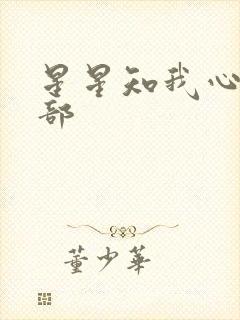 星星知我心
部
董少华